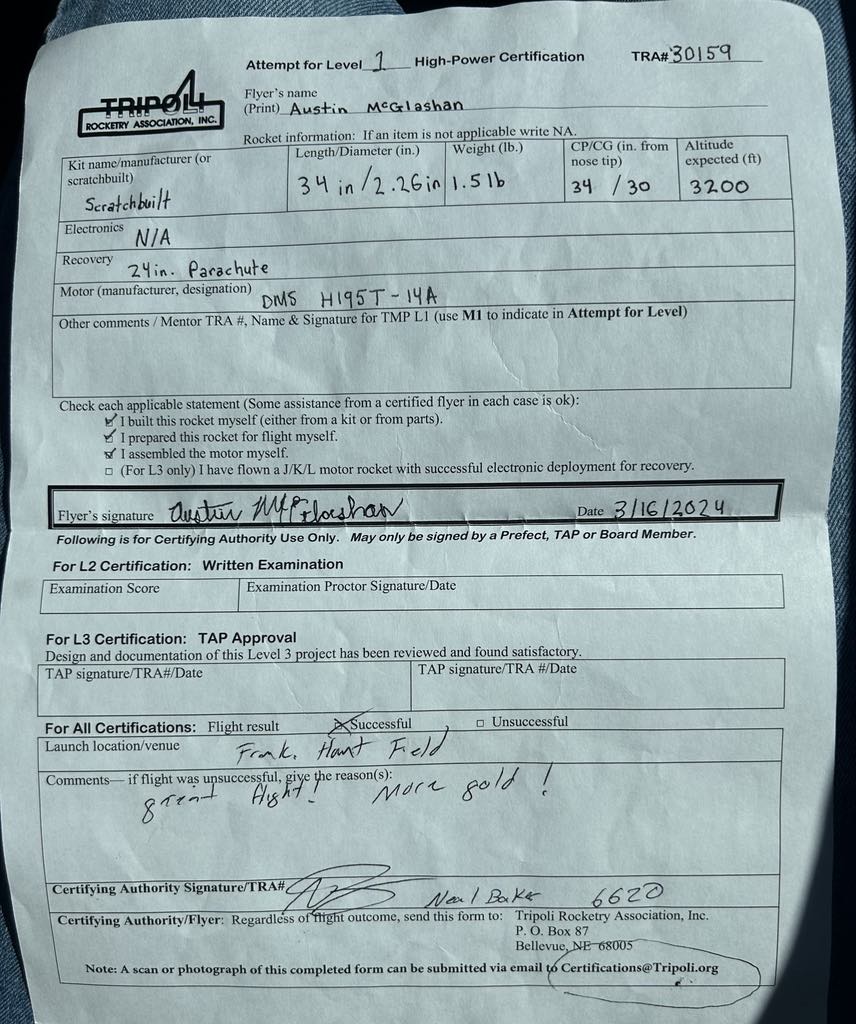 Attempt for Level 1 High-Power Certification TRA# 30159
TRIPOLI
ROCKETRY ASSOCIATION, INC.
Flyer's name
(Print) Austin McGlashan
Rocket information: If an item is not applicable write NA.
Kit name/manufacturer (or scratchbuilt)
Scratchbuilt
Length/Diameter (in.)
34 in/2.26in
Weight (lb.)
1.5 lb
CP/CG (in. from nose tip)
34 / 30
Altitude expected (ft)
3200
Electronics N/A
Recovery 24in. Parachute
Motor (manufacturer, designation) DMS H195T-14A
Other comments / Mentor TRA #, Name & Signature for TMP L1 (use M1 to indicate in Attempt for Level)
Check each applicable statement (Some assistance from a certified flyer in each case is ok):
☑ I built this rocket myself (either from a kit or from parts).
☑ I prepared this rocket for flight myself.
☑ I assembled the motor myself.
☐ (For L3 only) I have flown a J/K/L motor rocket with successful electronic deployment for recovery.
Flyer's signature Austin McGlashan Date 3/16/2024
Following is for Certifying Authority Use Only. May only be signed by a Prefect, TAP or Board Member.
For L2 Certification: Written Examination
Examination Score
Examination Proctor Signature/Date
For L3 Certification: TAP Approval
Design and documentation of this Level 3 project has been reviewed and found satisfactory.
TAP signature/TRA#/Date
TAP signature/TRA #/Date
For All Certifications: Flight result ☒ Successful ☐ Unsuccessful
Launch location/venue Frank Hunt Field
Comments— if flight was unsuccessful, give the reason(s):
great flight! More gold!
Certifying Authority Signature/TRA# Neal Baker 6620
Certifying Authority/Flyer: Regardless of flight outcome, send this form to: Tripoli Rocketry Association, Inc.
P. O. Box 87
Bellevue, NE 68005
Note: A scan or photograph of this completed form can be submitted via email to Certifications@Tripoli.org